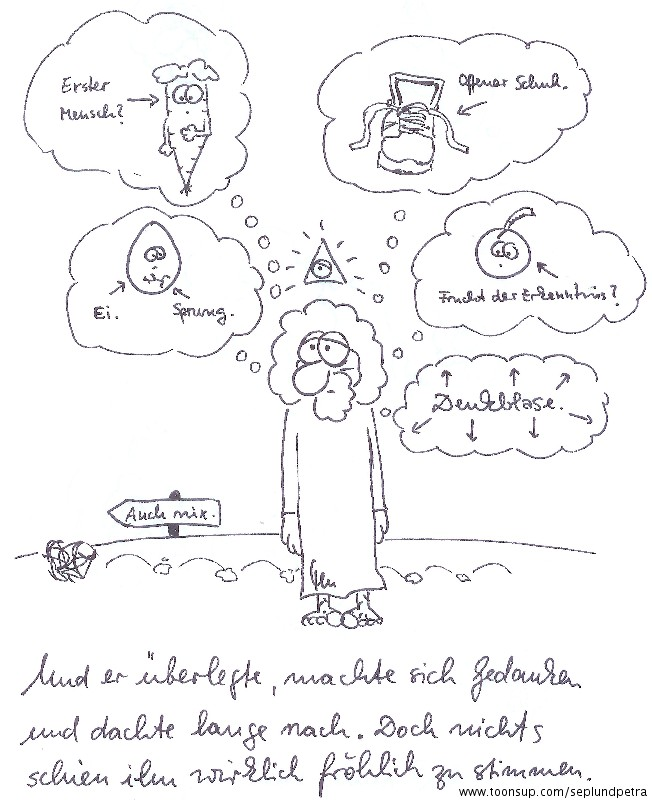 Erster
Mensch?
Offener Schuh.
Ei.
Sprung.
Frucht der Erkenntnis?
Denkblase.
Auch nix.
Und er überlegte, machte sich Gedanken
und dachte lange nach. Doch nichts
schien ihn wirklich fröhlich zu stimmen.
www.toonsup.com/seplundpetra